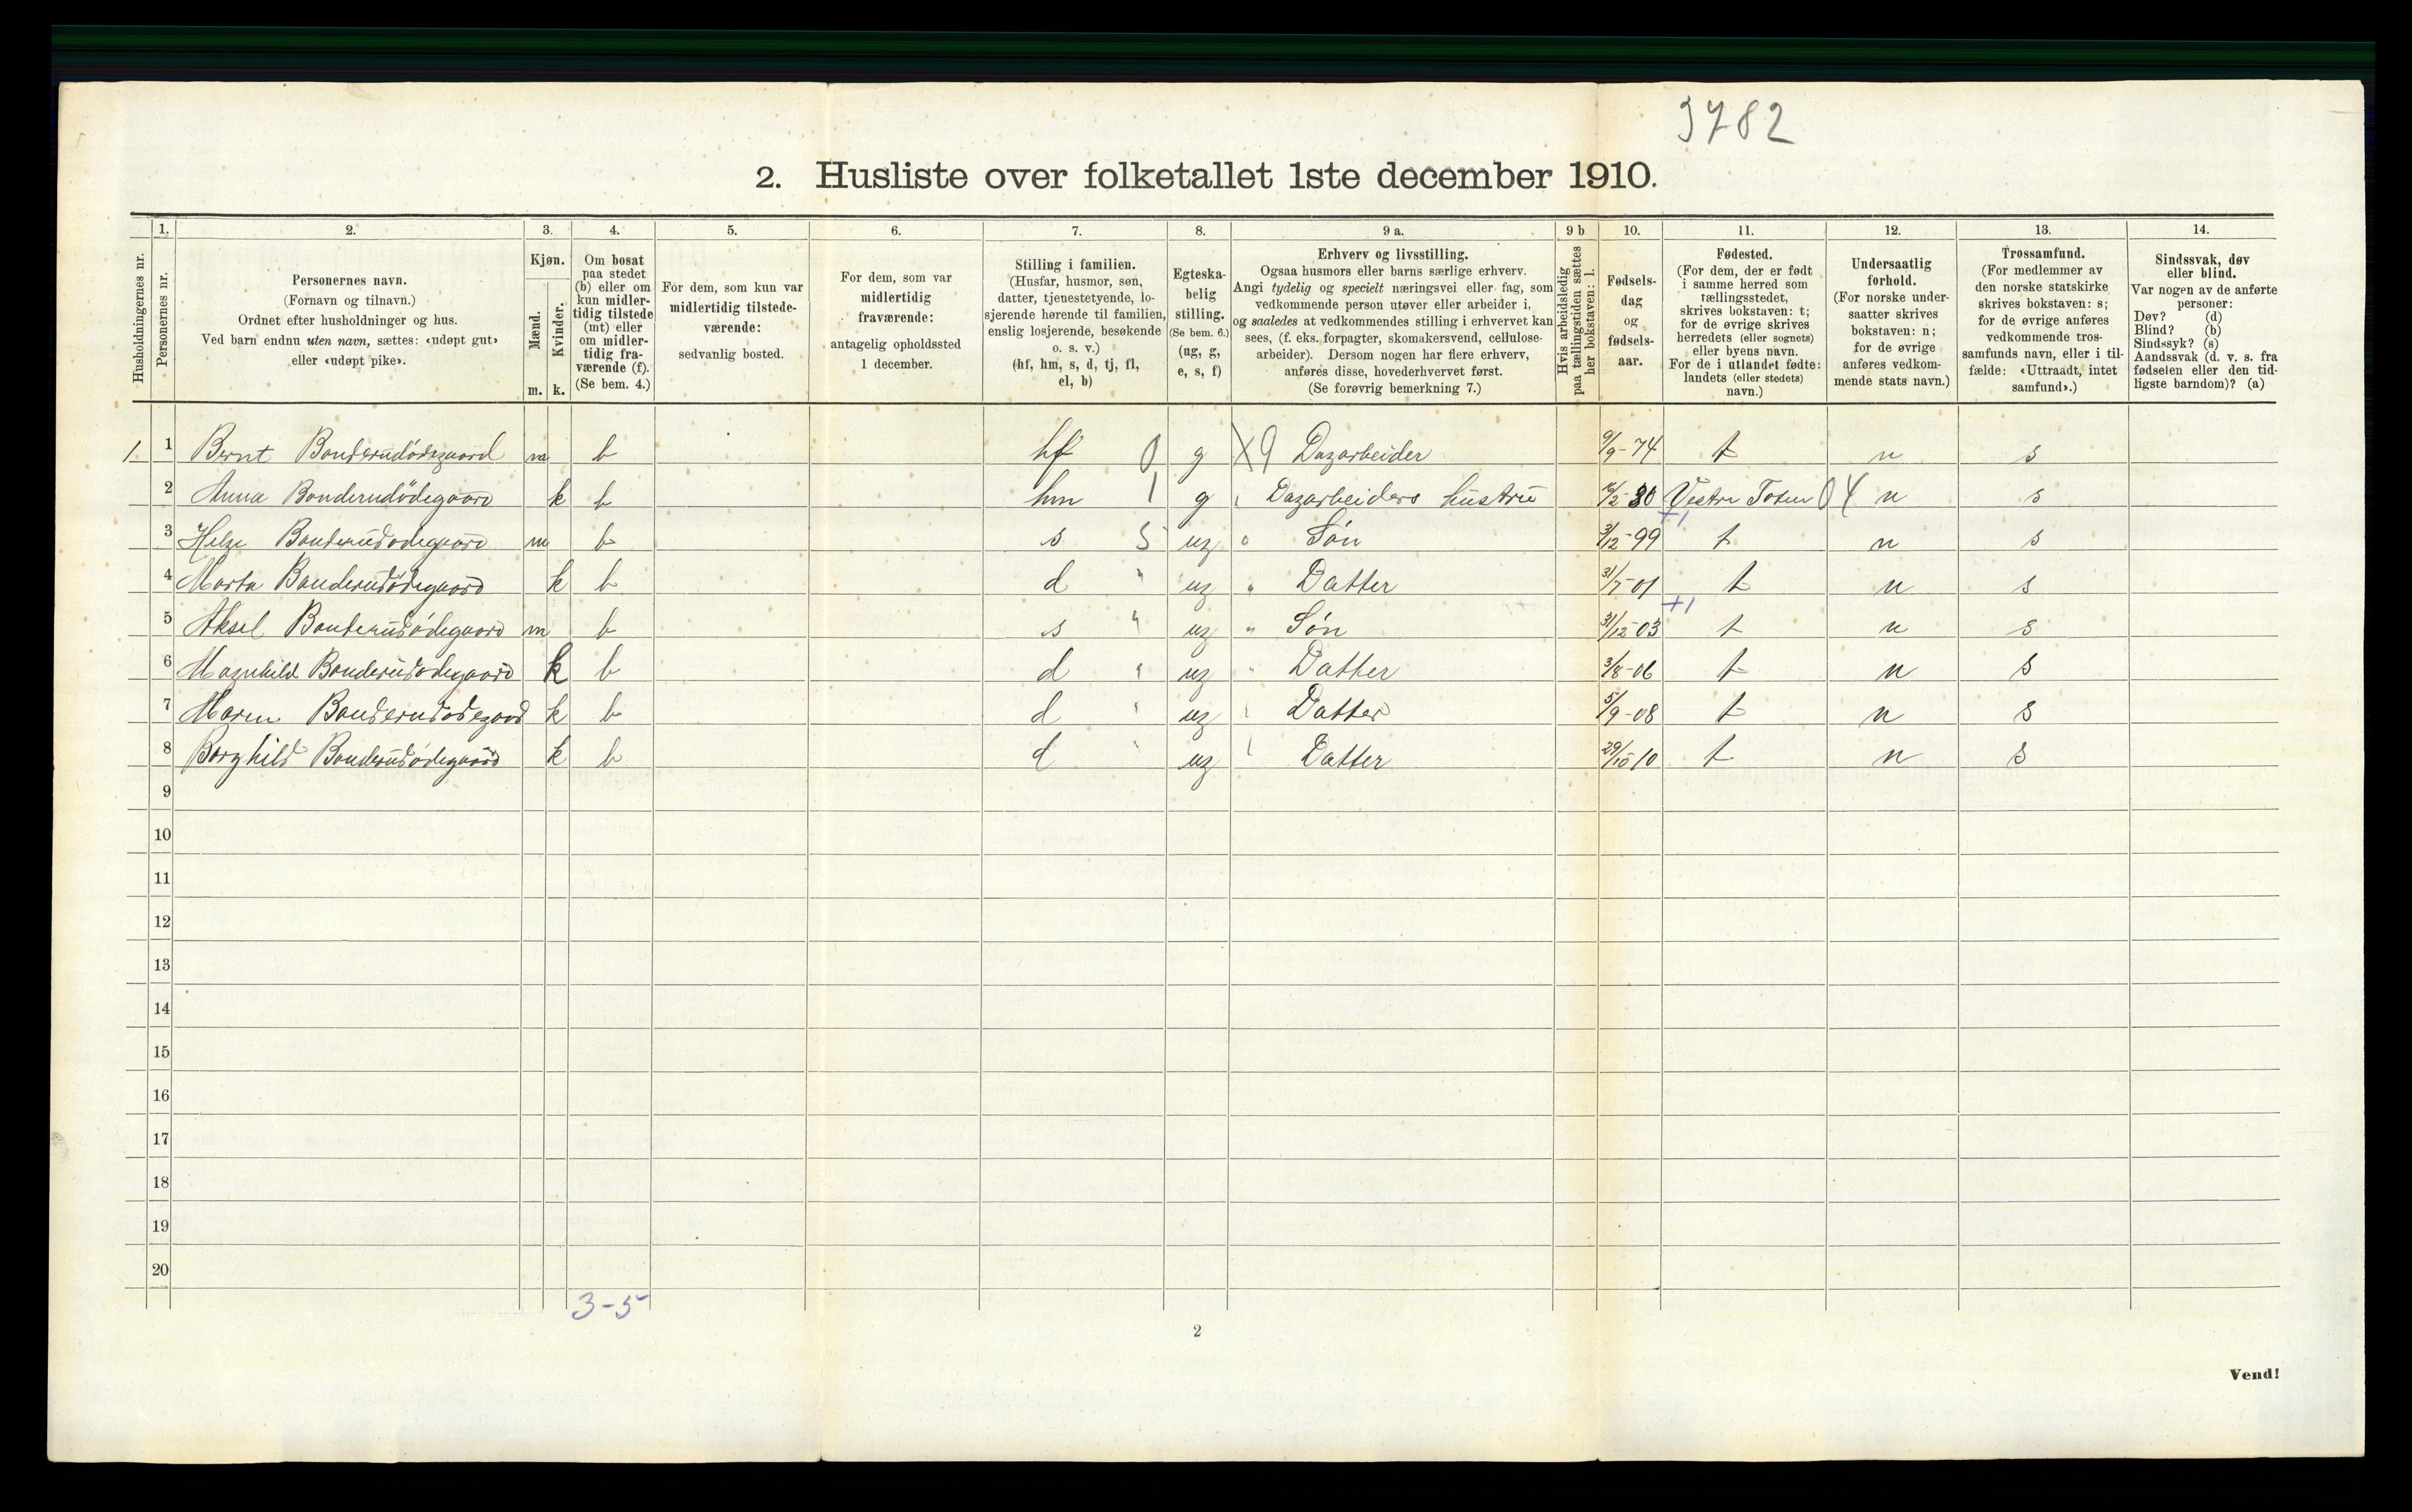 3782
2. Husliste over folketallet 1ste december 1910.
Husholdningernes nr.
1. Personernes nr.
2. Personernes navn. (Fornavn og tilnavn.) Ordnet efter husholdninger og hus. Ved barn endnu uten navn, sættes: «udøpt gut» eller «udøpt pike».
3. Kjøn. Mænd. m. Kvinder. k.
4. Om bosat paa stedet (b) eller om kun midlertidig tilstede (mt) eller om midlertidig fraværende (f). (Se bem. 4.)
5. For dem, som kun var midlertidig tilstedeværende: sedvanlig bosted.
6. For dem, som var midlertidig fraværende: antagelig opholdssted 1 december.
7. Stilling i familien. (Husfar, husmor, søn, datter, tjenestetyende, losjerende hørende til familien, enslig losjerende, besøkende o. s. v.) (hf, hm, s, d, tj, fl, el, b)
8. Egteskabelig stilling. (Se bem. 6.) (ug, g, e, s, f)
9 a. Erhverv og livsstilling. Ogsaa husmors eller barns særlige erhverv. Angi tydelig og specielt næringsvei eller fag, som vedkommende person utøver eller arbeider i, og saaledes at vedkommendes stilling i erhvervet kan sees, (f. eks. forpagter, skomakersvend, cellulosearbeider). Dersom nogen har flere erhverv, anføres disse, hovederhvervet først. (Se forøvrig bemerkning 7.)
9 b Hvis arbeidsledig paa tællingstiden sættes her bokstaven: l.
10. Fødselsdag og fødselsaar.
11. Fødested. (For dem, der er født i samme herred som tællingsstedet, skrives bokstaven: t; for de øvrige skrives herredets (eller sognets) eller byens navn. For de i utlandet fødte: landets (eller stedets) navn.)
12. Undersaatlig forhold. (For norske undersaatter skrives bokstaven: n; for de øvrige anføres vedkommende stats navn.)
13. Trossamfund. (For medlemmer av den norske statskirke skrives bokstaven: s; for de øvrige anføres vedkommende trossamfunds navn, eller i tilfælde: «Uttraadt, intet samfund».)
14. Sindssvak, døv eller blind. Var nogen av de anførte personer: Døv? (d) Blind? (b) Sindssyk? (s) Aandssvak (d. v. s. fra fødselen eller den tidligste barndom)? (a)
1. 1 Bernt Bonderudødegaard m b hf 0 g X9 Dagarbeider 9/9-74 t n s
2 Anna Bonderudødegaard k b hm 1 g " Dagarbeiders hustru 80 Vestre Toten 04 n s
3 Helge Bonderudødegaard m b s 5 ug " Søn 3/12-99 +1 t n s
4 Marta Bonderudødegaard k b d " ug " Datter 31/7-01 t n s
5 Aksel Bonderudødegaard m b s " ug " Søn 31/12-03 +1 t n s
6 Magnhild Bonderudødegaard k b d " ug " Datter 3/8-06 t n s
7 Maren Bonderudødegaard k b d " ug " Datter 5/9-08 t n s
8 Borghild Bonderudødegaard k b d " ug " Datter 29/10 10 t n s
9
10
11
12
13
14
15
16
17
18
19
20
3-5
2
Vend!